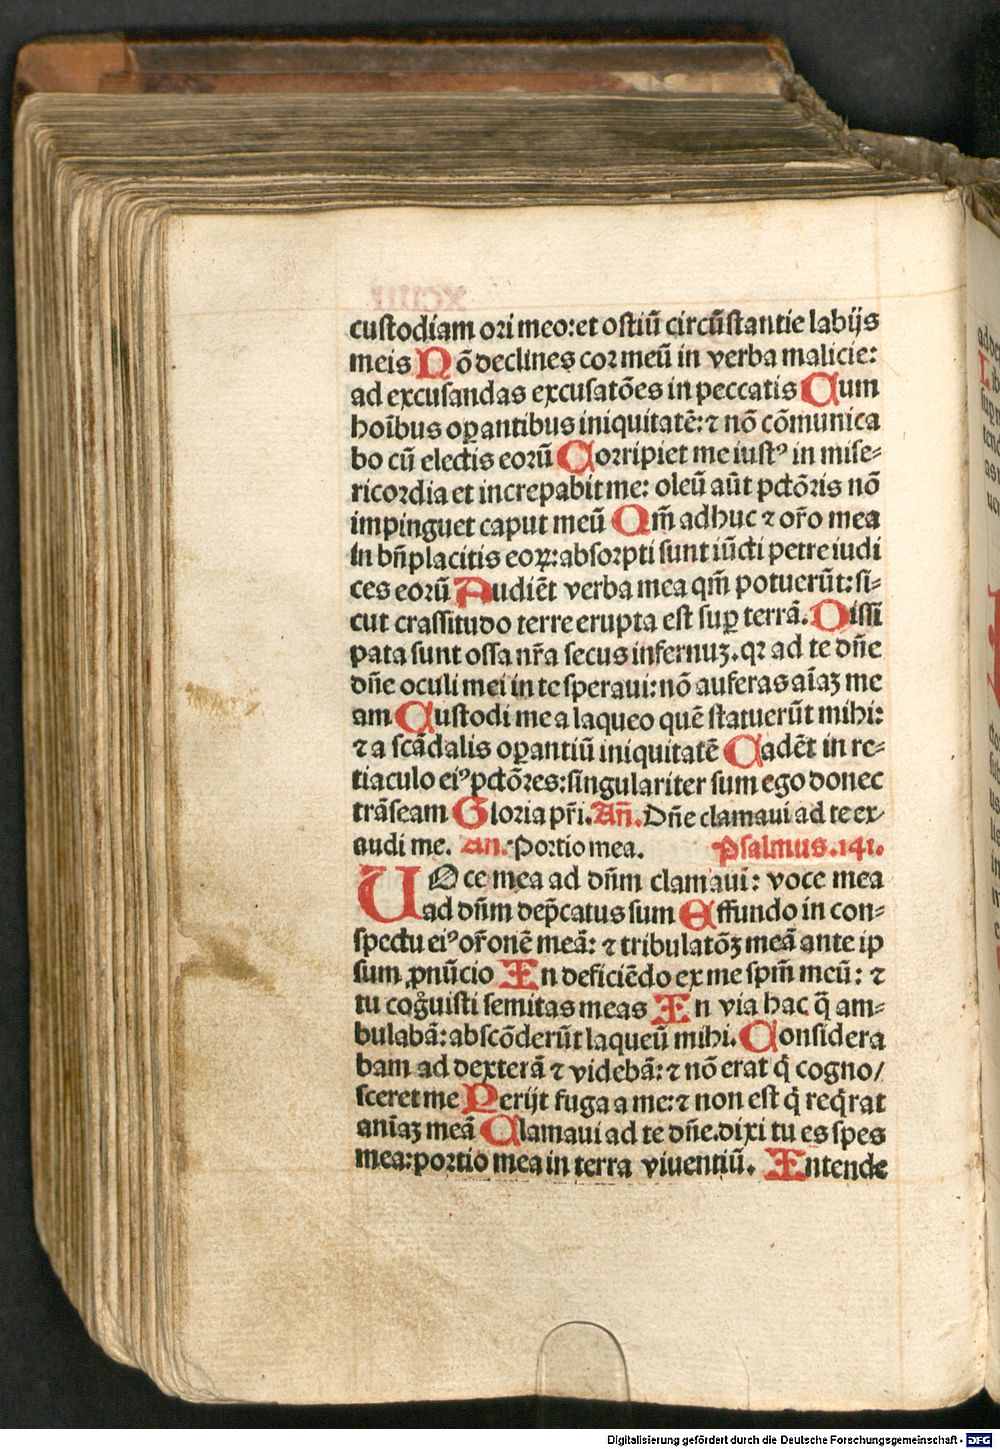 custodiam ori meo: et ostiū circūstantie labijs
meis Nō declines cor meū in verba malicie:
ad excusandas excusatōes in peccatis Cum
hoībus oꝑantibus iniquitatē: ⁊ nō cōmunica
bo cū electis eorū Corripiet me iustꝰ in mise-
ricordia et increpabit me: oleū aūt pctōris nō
impinguet caput meū Qm̄ adhuc ⁊ or̄o mea
in bn̄placitis eoꝝ: absorpti sunt iūcti petre iudi
ces eorū Audiēt verba mea qm̄ potuerūt: si-
cut crassitudo terre erupta est suꝑ terrā. Dissi
pata sunt ossa nr̄a secus infernuꝫ. qꝛ ad te dn̄e
dn̄e oculi mei in te speraui: nō auferas aīaꝫ me
am Custodi me a laqueo quē statuerūt mihi:
⁊ a scādalis oꝑantiū iniquitatē Cadēt in re-
tiaculo eiꝰ pctōres: singulariter sum ego donec
trāseam Gloria pr̄i. Añ. Dn̄e clamaui ad te ex-
audi me. An. Portio mea. Psalmus. 141.
UOce mea ad dn̄m clamaui: voce mea
ad dn̄m dep̄catus sum Effundo in con-
spectu eiꝰ or̄onē meā: ⁊ tribulatōꝫ meā ante ip
sum ꝓnūcio In deficiēdo ex me spm̄ meū: ⁊
tu cogͦuisti semitas meas In via hac q̄ am-
bulabā: abscōderūt laqueū mihi. Considera
bam ad dexterā ⁊ videbā: ⁊ nō erat q̇ cogno/
sceret me Perijt fuga a me: ⁊ non est q̇ req̇rat
anīaꝫ meā Clamaui ad te dn̄e. dixi tu es spes
mea: portio mea in terra viuentiū. Intende
Digitalisierung gefördert durch die Deutsche Forschungsgemeinschaft - DFG